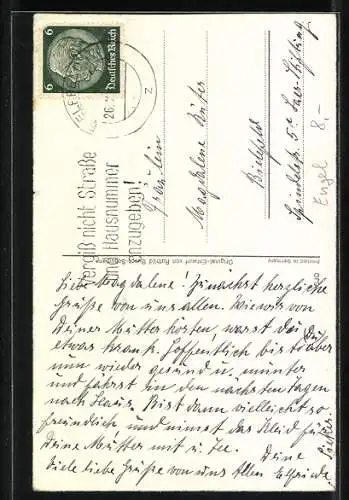 6 Deutsches Reich 6
Vergiß nicht Straße
und Hausnummer
anzugeben!
Fräulein
Magdalene
Bielefeld
Engel 8,-
Original-Entwurf von
Printed in Germany
Liebe Magdalene! Zunächst herzliche
Grüße von uns allen. Wie wir von
Deiner Mutter hörten, warst Du
etwas krank. Hoffentlich bist Du aber
nun wieder gesund u. munter
und fährst in den nächsten Tagen
nach Haus. Bist dann vielleicht so
freundlich und nimmst das Kleid für
Deine Mutter mit u. Tee.
Viele liebe Grüße von uns Allen
Deine
Elfriede